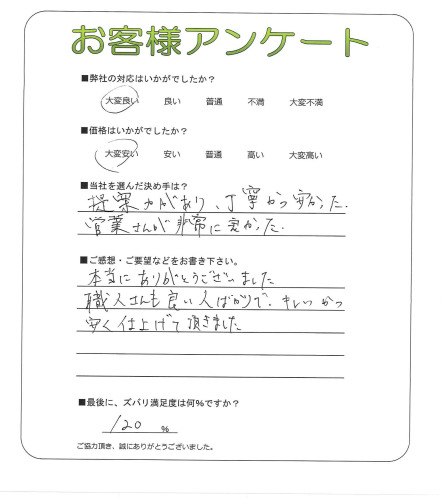 お客様アンケート
■弊社の対応はいかがでしたか？
大変良い 良い 普通 不満 大変不満
■価格はいかがでしたか？
大変安い 安い 普通 高い 大変高い
■当社を選んだ決め手は？
提案力があり、丁寧かつ安かった.
営業さんが非常に良かった.
■ご感想・ご要望などをお書き下さい。
本当にありがとうございました
職人さんも良い人ばかりで、キレイかつ
安く仕上げて頂きました
■最後に、ズバリ満足度は何％ですか？
120 ％
ご協力頂き、誠にありがとうございました。